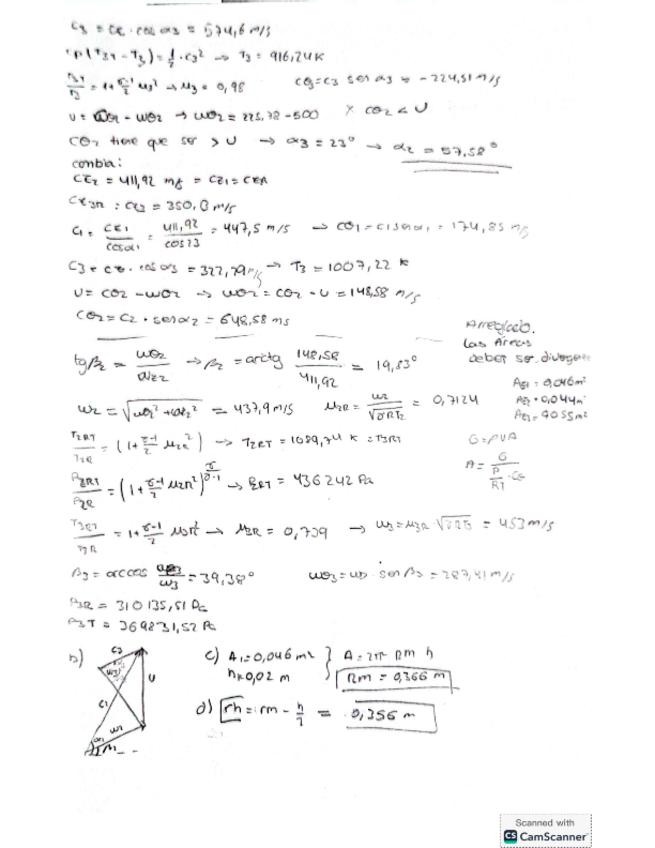 C3 = Cz · cos α3 = 574,6 m/s
cp (T3T - T3) = 1/2 · C3² → T3 = 916,24 K
T3T/T3 = 1 + γ-1/2 M3² → M3 = 0,98 Cθ3 = C3 sen α3 = -224,51 m/s
U = Cθ2 - Wθ2 → Wθ2 = 225,78 - 500 X Cθ2 < U
Cθ2 tiene que ser > U → α3 = 23° → α2 = 57,58°
cambia:
Cz2 = 411,92 m/s = Cz1 = Cz
= 350,
C1 = Cz1/cosα1 = 411,92/cos 23 = 447,5 m/s → Cθ1 = C1 senα1 = 174,85 m/s
C3 = Cz · cos α3 = 322,79 m/s → T3 = 1007,22 K
U = Cθ2 - Wθ2 → Wθ2 = Cθ2 - U = 148,58 m/s
Cθ2 = C2 · sen α2 = 648,58 m/s
Arreglado.
Las Áreas
deben ser
tg β2 = Wθ2/Wz2 → β2 = arctg 148,58/411,92 = 19,83°
= 0,046 m²
= 0,044 m²
= 4055 m²
W2 = √ = 437,9 m/s M2R = W2/√γRT2 = 0,7124
T2RT/T2R = (1 + γ-1/2 M2R²) → T2RT = 1089,74 K = T3RT
G = ρVA
A = G / P/RT · Cz
P2RT/P2R = (1 + γ-1/2 M2R²)^γ/γ-1 → P2RT = 436242 Pa
T3RT/T3R = 1 + γ-1/2 M3R² → M3R = 0,739 → W3 = M3R √γRT3 = 453 m/s
β3 = arccos /W3 = 39,38° Wθ3 = W3 · sen β3 = 287,41 m/s
P3R = 310135,51 Pa
P3T = 369831,52 Pa
b) C3
W3
U
C1
W2
c) A1 = 0,046 m² } A = 2π Rm h
h = 0,02 m Rm = 0,366 m
d) rh = rm - h/2 = 0,356 m
Scanned with
CS CamScanner